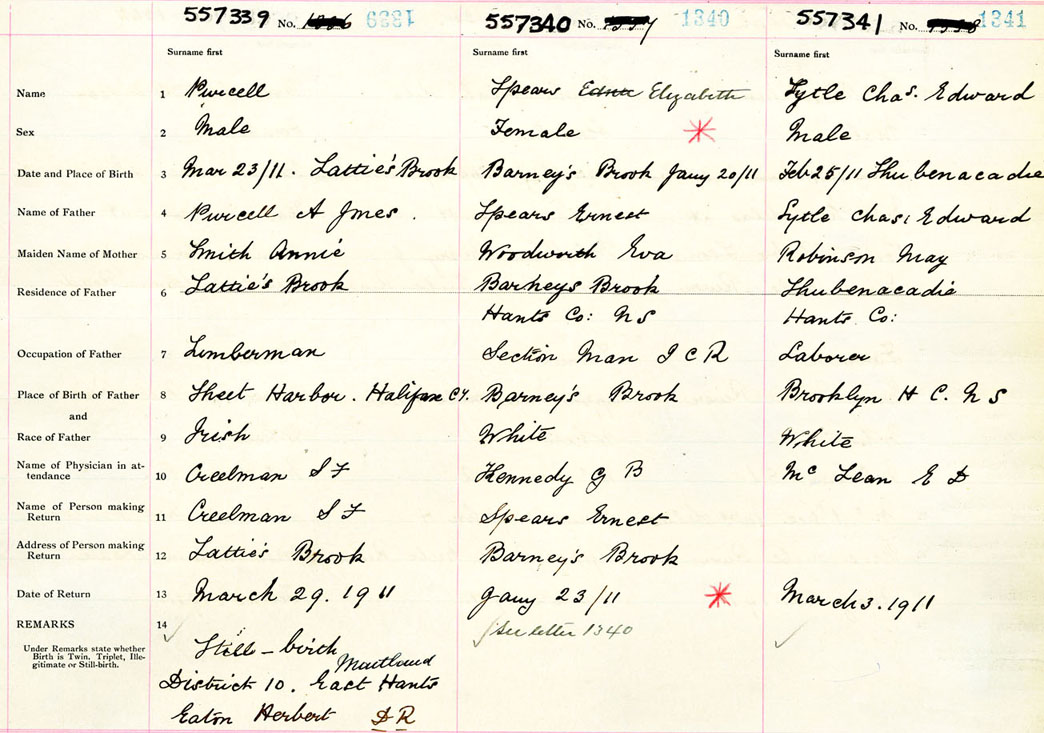 557339 No. 1339
557340 No. 1340
557341 No. 1341
Surname first Surname first Surname first
Name 1 Purcell Spears Edna Elizabeth Lytle Chas. Edward
Sex 2 Male Female Male
Date and Place of Birth 3 Mar 23/11. Lattie's Brook Barney's Brook Jany 20/11 Feb 25/11 Shubenacadie
Name of Father 4 Purcell A Jmes. Spears Ernest Lytle Chas, Edward
Maiden Name of Mother 5 Smith Annie Woodworth Eva Robinson May
Residence of Father 6 Lattie's Brook Barneys Brook Shubenacadie
Hants Co: N S Hants Co:
Occupation of Father 7 Lumberman Section Man I C R Laborer
Place of Birth of Father 8 Sheet Harbor. Halifax Cy. Barney's Brook Brooklyn H C. N S
and
Race of Father 9 Irish White White
Name of Physician in at-
tendance 10 Creelman S F Kennedy G B Mc Lean E D
Name of Person making
Return 11 Creelman S F Spears Ernest
Address of Person making
Return 12 Lattie's Brook Barney's Brook
Date of Return 13 March 29. 1911 Jany 23/11 March 3. 1911
REMARKS 14 Still-birth See letter 1340
Under Remarks state whether
Birth is Twin. Triplet, Ille-
gitimate or Still-birth.
Maitland
District 10. East Hants
Eaton Herbert D R